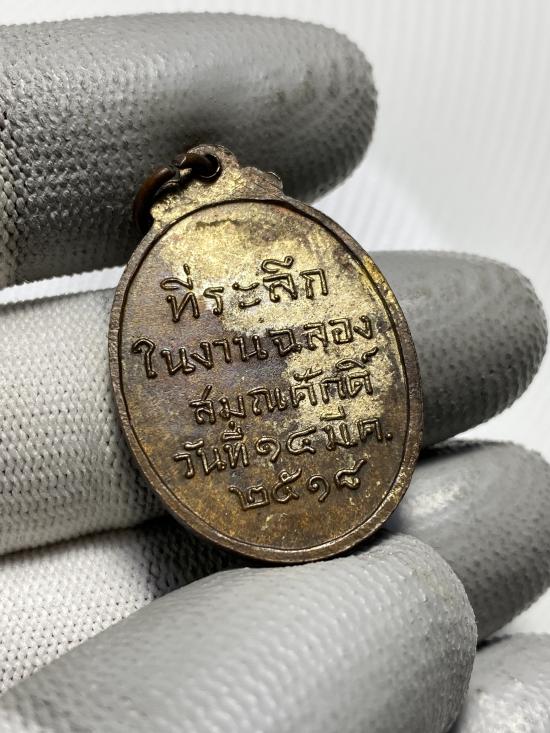 ที่ระลึก
ในงานฉลอง
สมณศักดิ์
วันที่ ๑๔ มี.ค.
๒๕๑๘